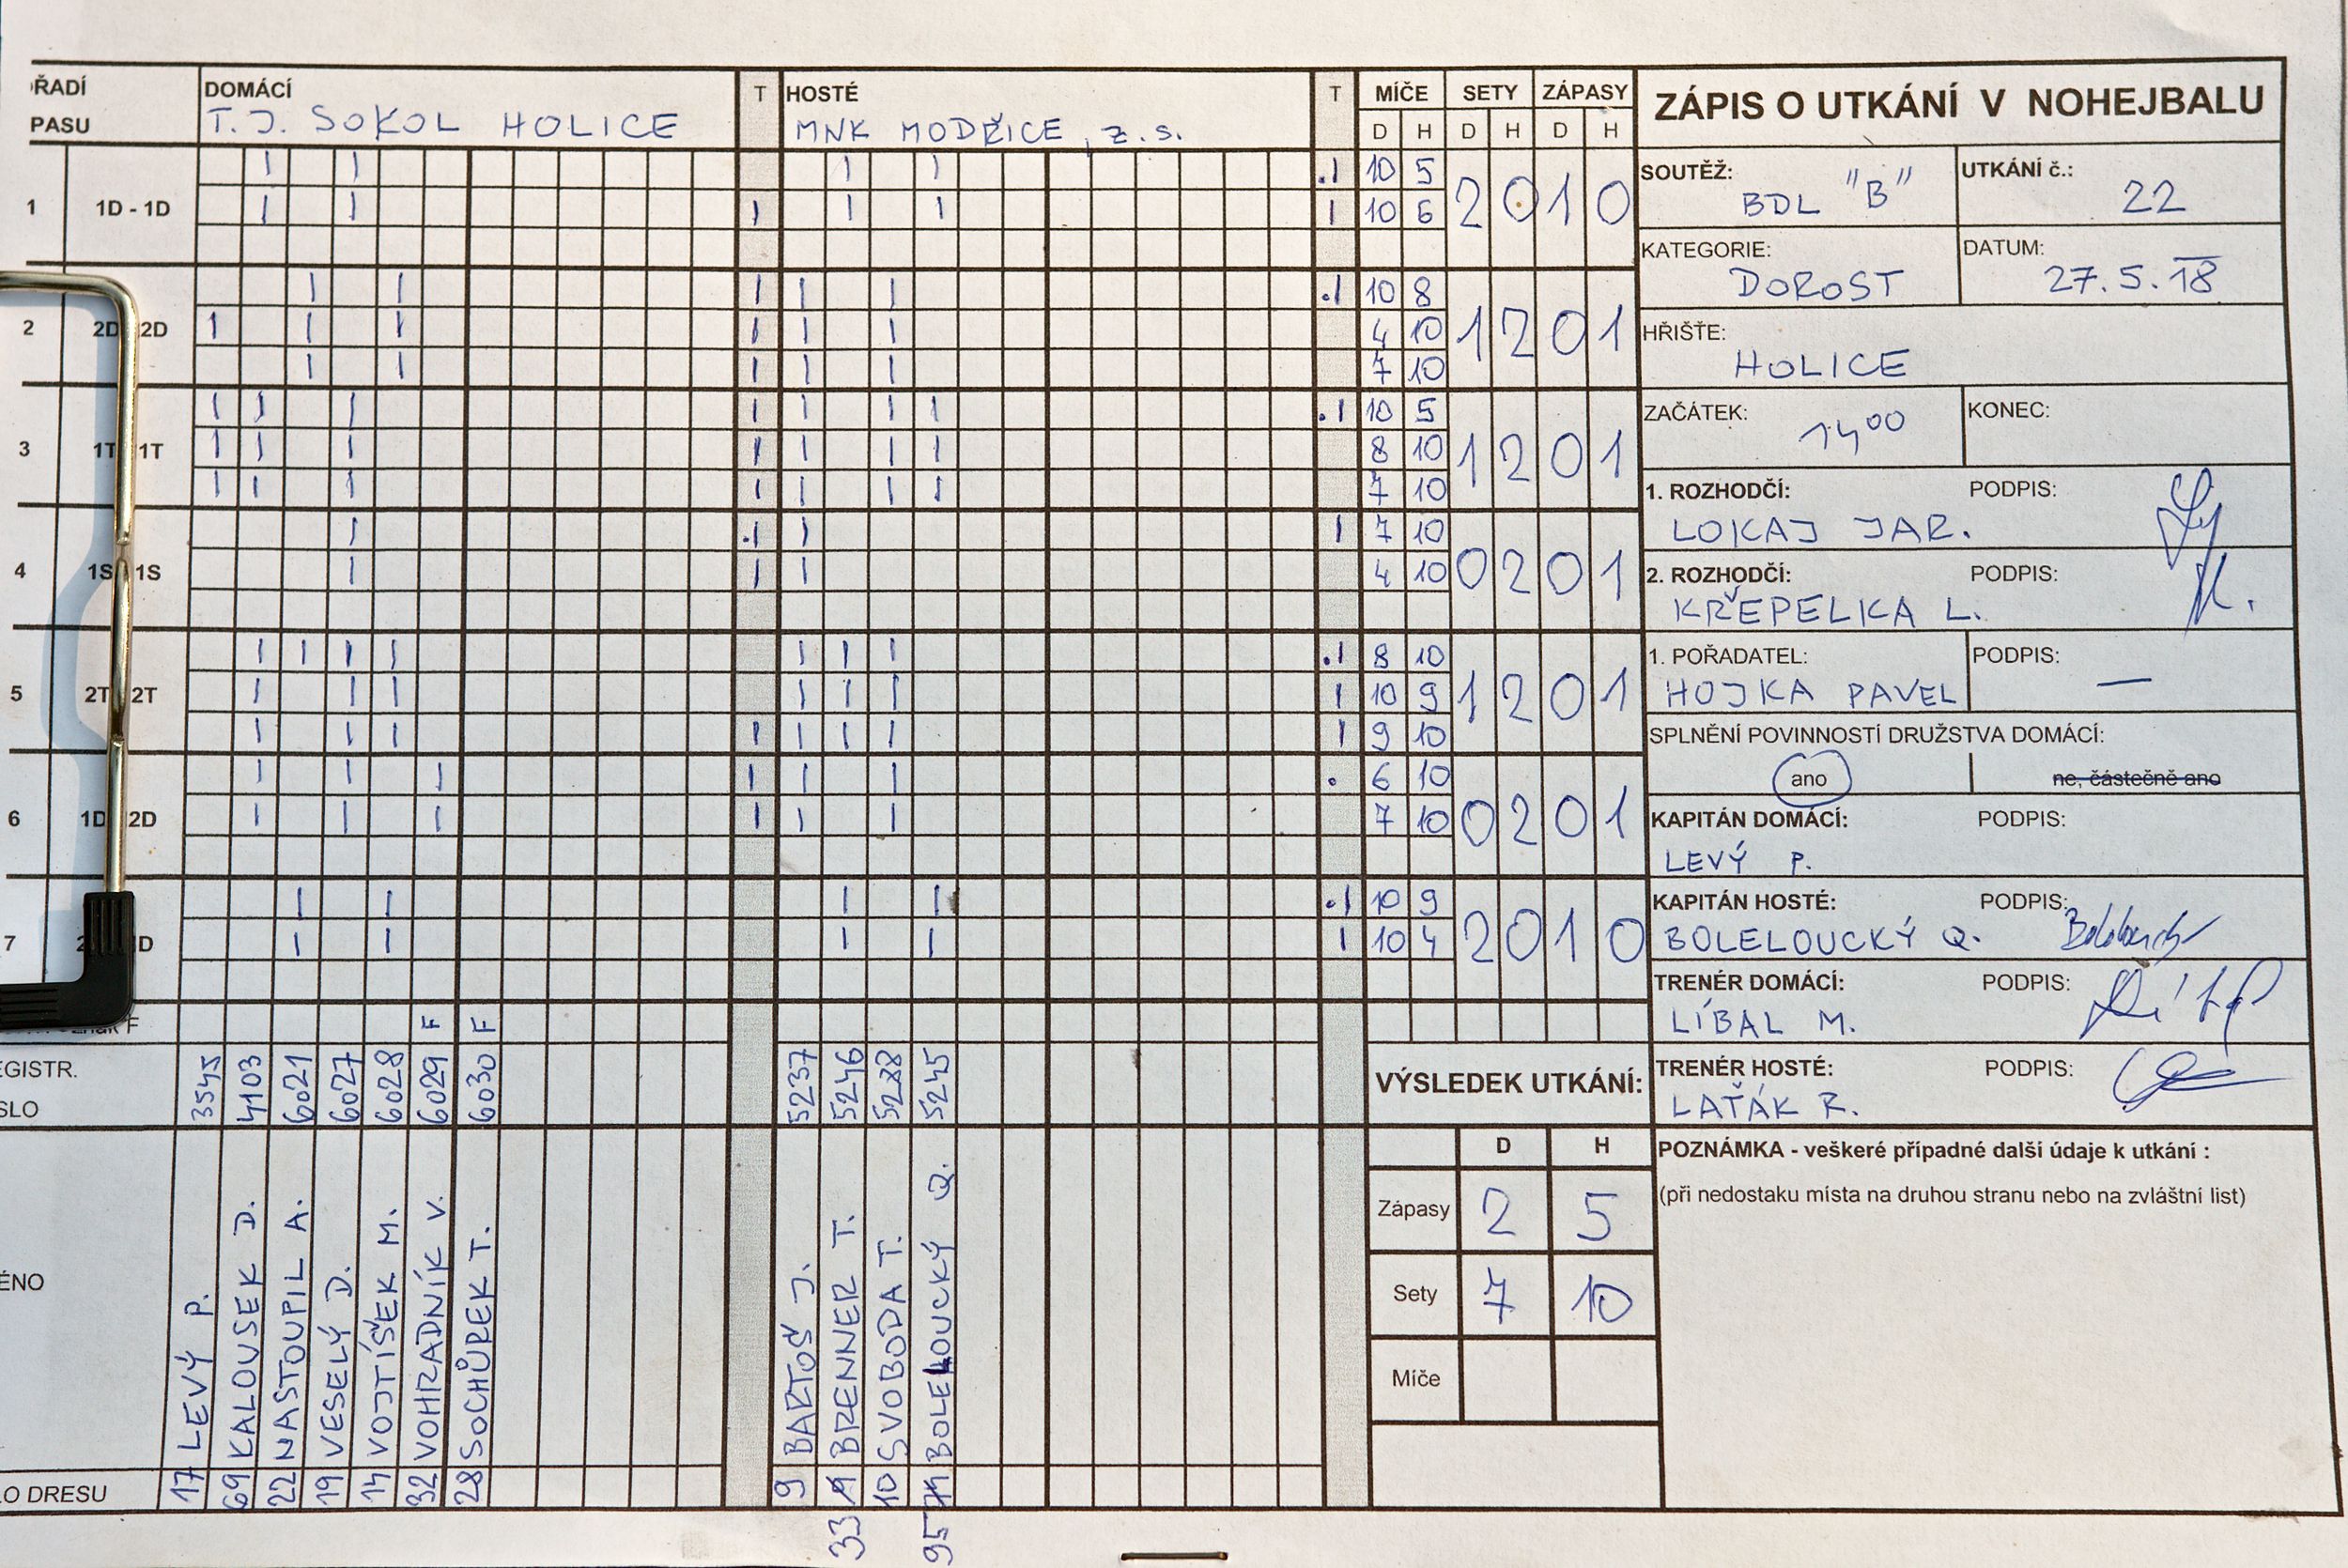 ŘADÍ DOMÁCÍ T HOSTÉ T MÍČE SETY ZÁPASY ZÁPIS O UTKÁNÍ V NOHEJBALU
PASU T.J. SOKOL HOLICE MNK MODŘICE, z.s. D H D H D H
1 1D - 1D 10 5 2 0 1 0
10 6
2 2D 2D 10 8 1 2 0 1
4 10
7 10
3 1T 1T 10 5 1 2 0 1
8 10
7 10
4 1S 1S 7 10 0 2 0 1
4 10
5 2T 2T 8 10 1 2 0 1
10 9
9 10
6 1D 2D 6 10 0 2 0 1
7 10
7 2 D 10 9 2 0 1 0
10 4
SOUTĚŽ: UTKÁNÍ č.:
BDL "B" 22
KATEGORIE: DATUM:
DOROST 27.5.18
HŘIŠTE:
HOLICE
ZAČÁTEK: 1400 KONEC:
1. ROZHODČÍ: PODPIS:
LOKAJ JAR.
2. ROZHODČÍ: PODPIS:
KŘEPELKA L.
1. POŘADATEL: PODPIS:
HOJKA PAVEL —
SPLNĚNÍ POVINNOSTÍ DRUŽSTVA DOMÁCÍ:
ano ne, částečně ano
KAPITÁN DOMÁCÍ: PODPIS:
LEVÝ P.
KAPITÁN HOSTÉ: PODPIS:
BOLELOUCKÝ Q.
TRENÉR DOMÁCÍ: PODPIS:
LÍBAL M.
TRENÉR HOSTÉ: PODPIS:
LAŤÁK R.
F F
EGISTR.
SLO
3545 4103 6021 6027 6028 6029 6030 5237 5246 5288 5245
ÉNO
LEVÝ P.
KALOUSEK D.
NASTOUPIL A.
VESELÝ D.
VOJTÍŠEK M.
VOHRADNÍK V.
SOCHŮREK T.
BARTOŠ J.
BRENNER T.
SVOBODA T.
BOLELOUCKÝ Q.
LO DRESU 17 69 22 19 14 32 28 9 33 10 95
VÝSLEDEK UTKÁNÍ:
D H
Zápasy 2 5
Sety 7 10
Míče
POZNÁMKA - veškeré případné další údaje k utkání :
(při nedostaku místa na druhou stranu nebo na zvláštní list)